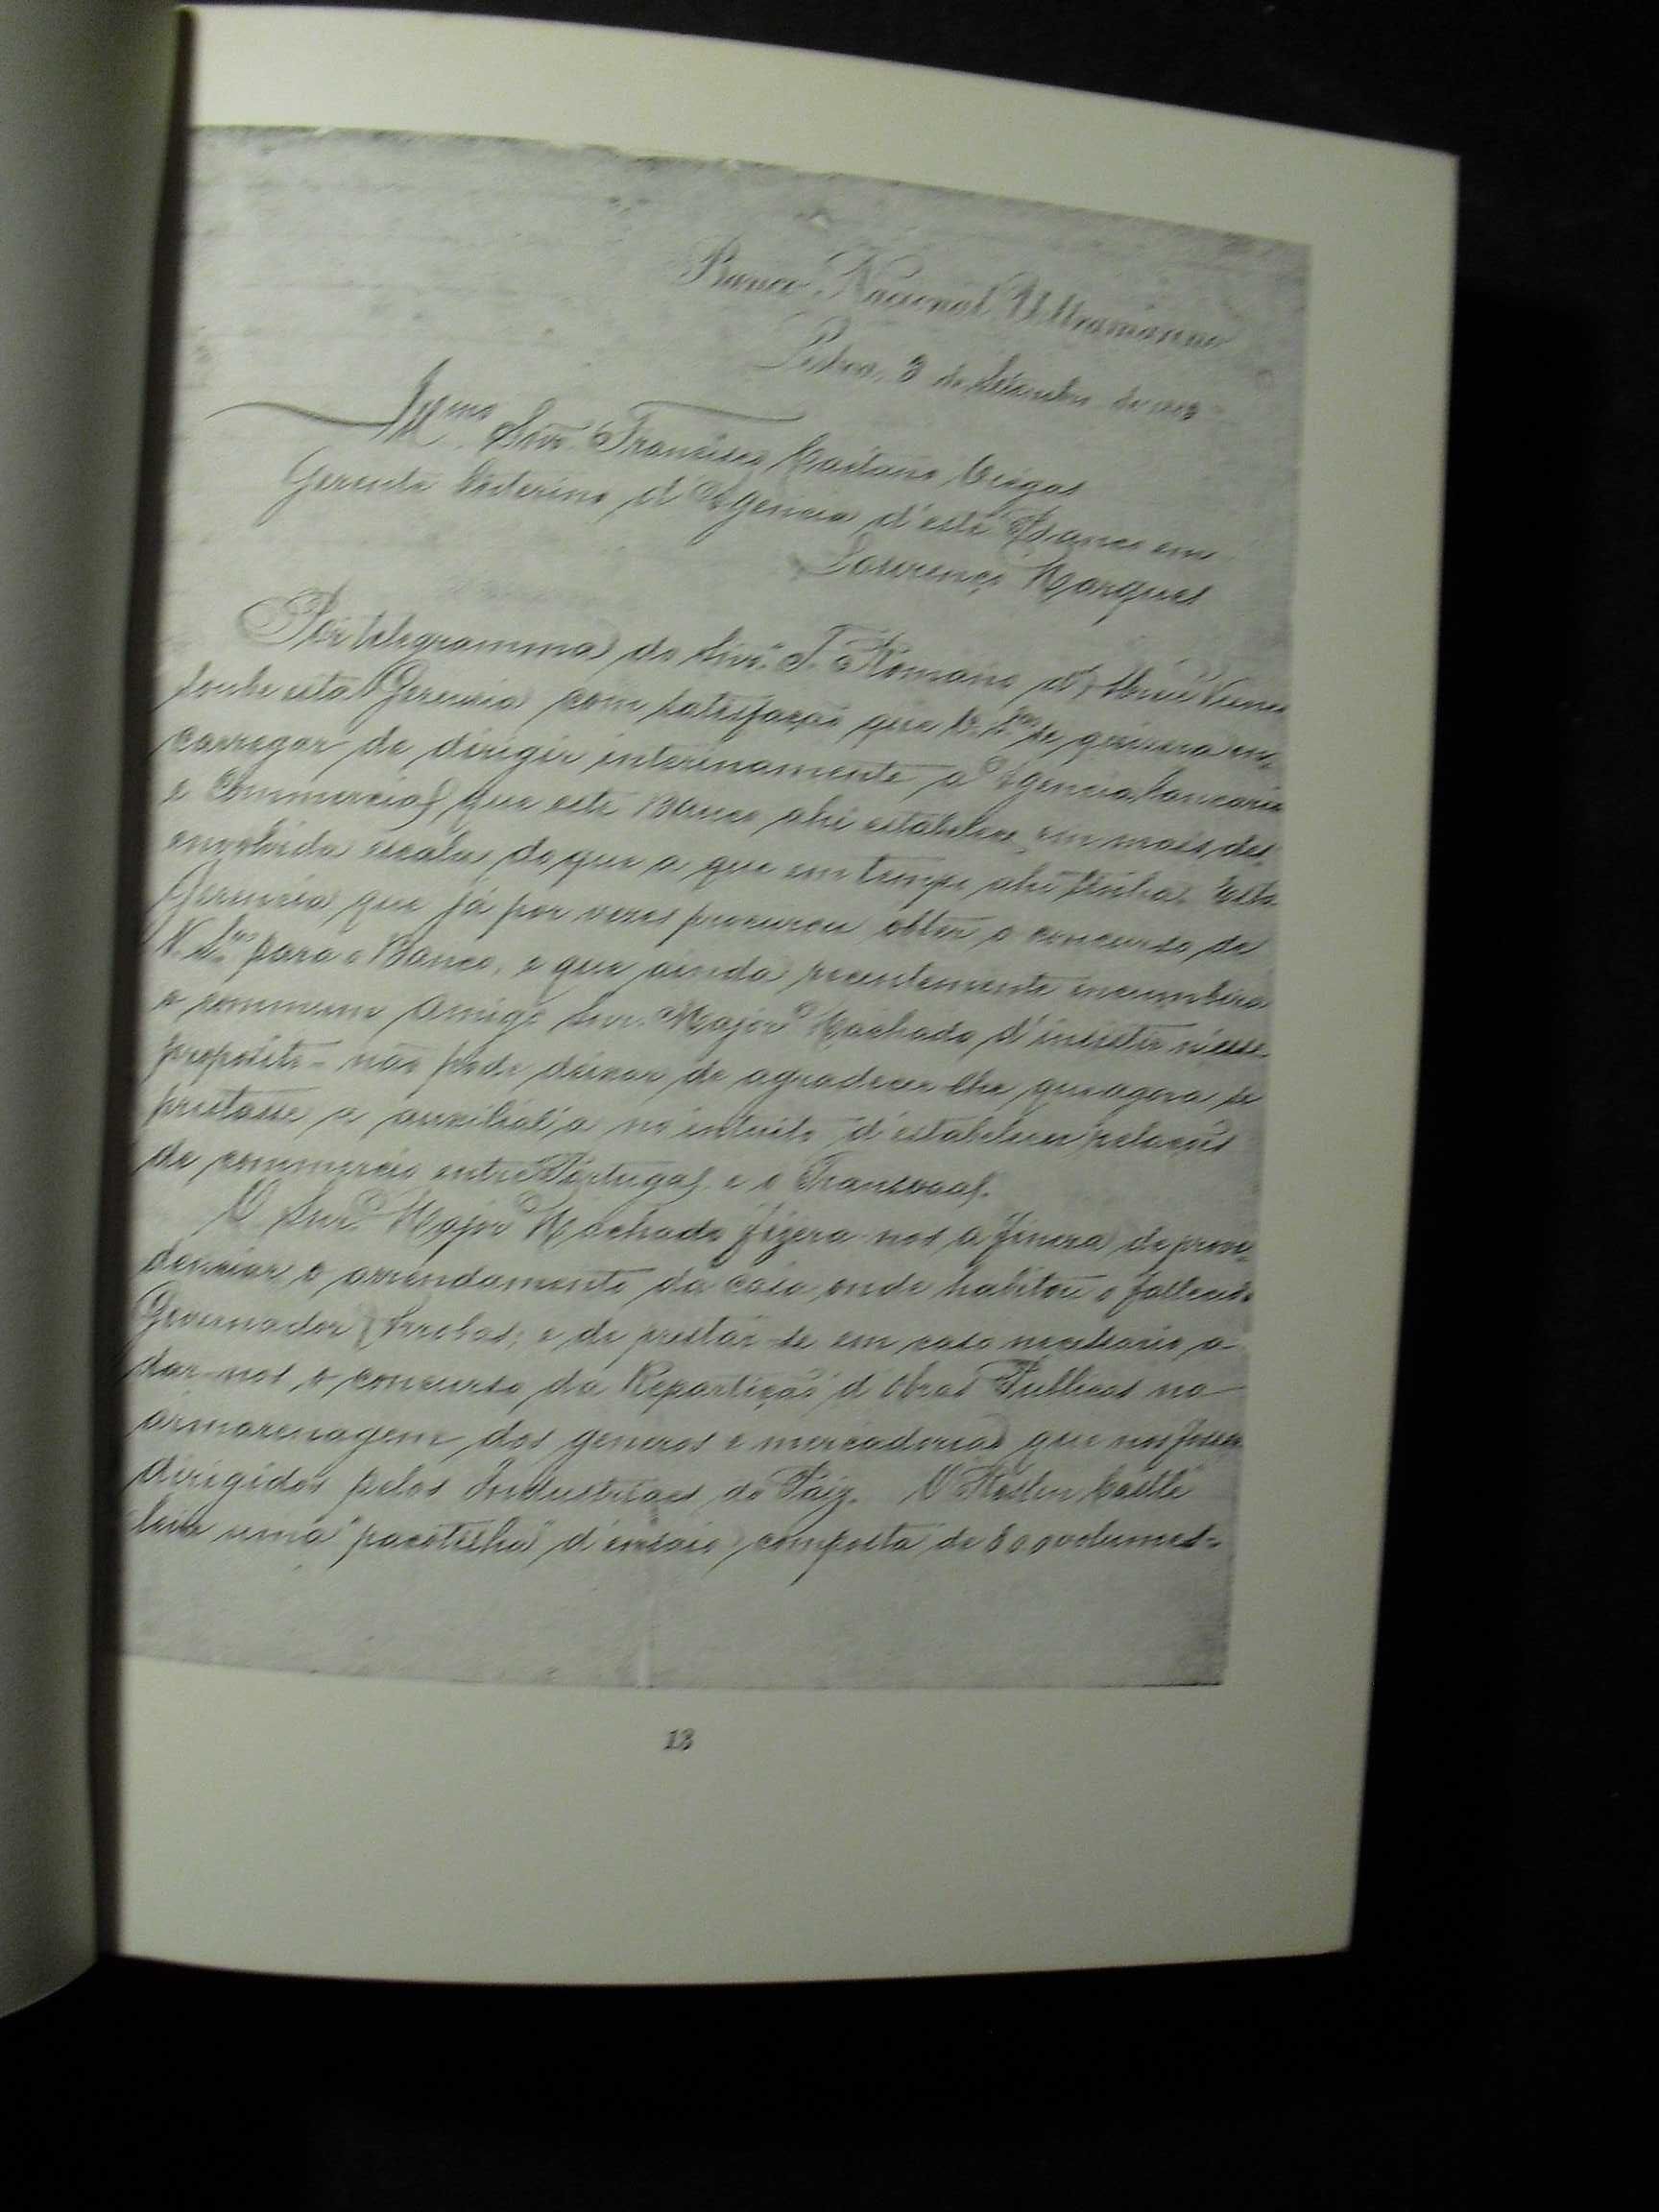 Banco Nacional Ultramarino
Lisboa, 3 de Setembro de
Illmo Snr. Francisco Caetano Viegas
Gerente Interino d'Agencia d'este Banco em
Lourenço Marques
Por telegramma do Snr. J. Romano d'
soube esta Gerencia com satisfação que V. Sra se quizera en-
carregar de dirigir interinamente a Agencia bancaria
e Commercial que este Banco ahi estabelece em mais des-
envolvida escala do que a que em tempo ahi tinha. Esta
Gerencia que já por vezes procurou obter o concurso de
V. Sra para o Banco, e que ainda recentemente incumbira
o commum amigo Snr. Major Machado d'insistir n'esse
proposito - não pode deixar de agradecer-lhe que agora se
prestasse a auxilial'a no intuito d'estabelecer relações
de commercio entre Portugal e o Transvaal.
O Snr. Major Machado fizera-nos a fineza de provi-
denciar o arrendamento da casa onde habitou o fallecido
Governador Arrobas; e de prestar-se em caso necessario a
dar-nos o concurso da Repartição d'Obras Publicas na
armazenagem dos generos e mercadorias que nos fossem
dirigidos pelos Industriaes do Paiz. O Roslin Castle
leva uma "pacotilha" d'ensaio composta de 800 volumes -
13